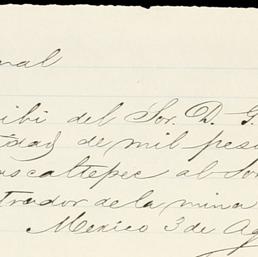 nal
ibi del Sor. D. G.
tidad de mil pes
ascaltepec al Sor
trador de la mina
Mexico 3 de Ag